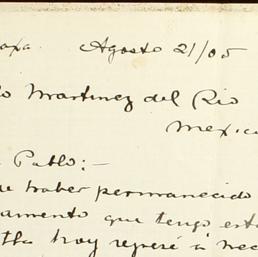 axa. Agosto 21/05
o Martinez del Rio
Mexico
Pablo:-
ue haber permanecido
amento que tengo esta
tla hoy regresé a